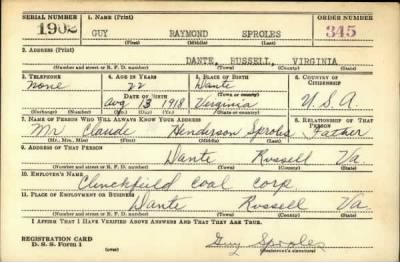 SERIAL NUMBER 1. NAME (Print) ORDER NUMBER
1902 GUY RAYMOND SPROLES 345
(First) (Middle) (Last)
2. ADDRESS (Print)
DANTE, RUSSELL, VIRGINIA
(Number and street or R. F. D. number) (Town) (County) (State)
3. TELEPHONE 4. AGE IN YEARS 5. PLACE OF BIRTH 6. COUNTRY OF CITIZENSHIP
None 22 Dante
DATE OF BIRTH (Town or county)
Aug 13 1918 Virginia U.S.A.
(Exchange) (Number) (Mo.) (Day) (Yr.) (State or country)
7. NAME OF PERSON WHO WILL ALWAYS KNOW YOUR ADDRESS 8. RELATIONSHIP OF THAT PERSON
Mr Claude Henderson Sproles Father
(Mr., Mrs., Miss) (First) (Middle) (Last)
9. ADDRESS OF THAT PERSON
Dante Russell Va.
(Number and street or R. F. D. number) (Town) (County) (State)
10. EMPLOYER'S NAME
Clinchfield Coal Corp
11. PLACE OF EMPLOYMENT OR BUSINESS
Dante Russell Va.
(Number and street or R. F. D. number) (Town) (County) (State)
I AFFIRM THAT I HAVE VERIFIED ABOVE ANSWERS AND THAT THEY ARE TRUE.
REGISTRATION CARD
D. S. S. Form 1 Guy Sproles
(over) (Registrant's signature)